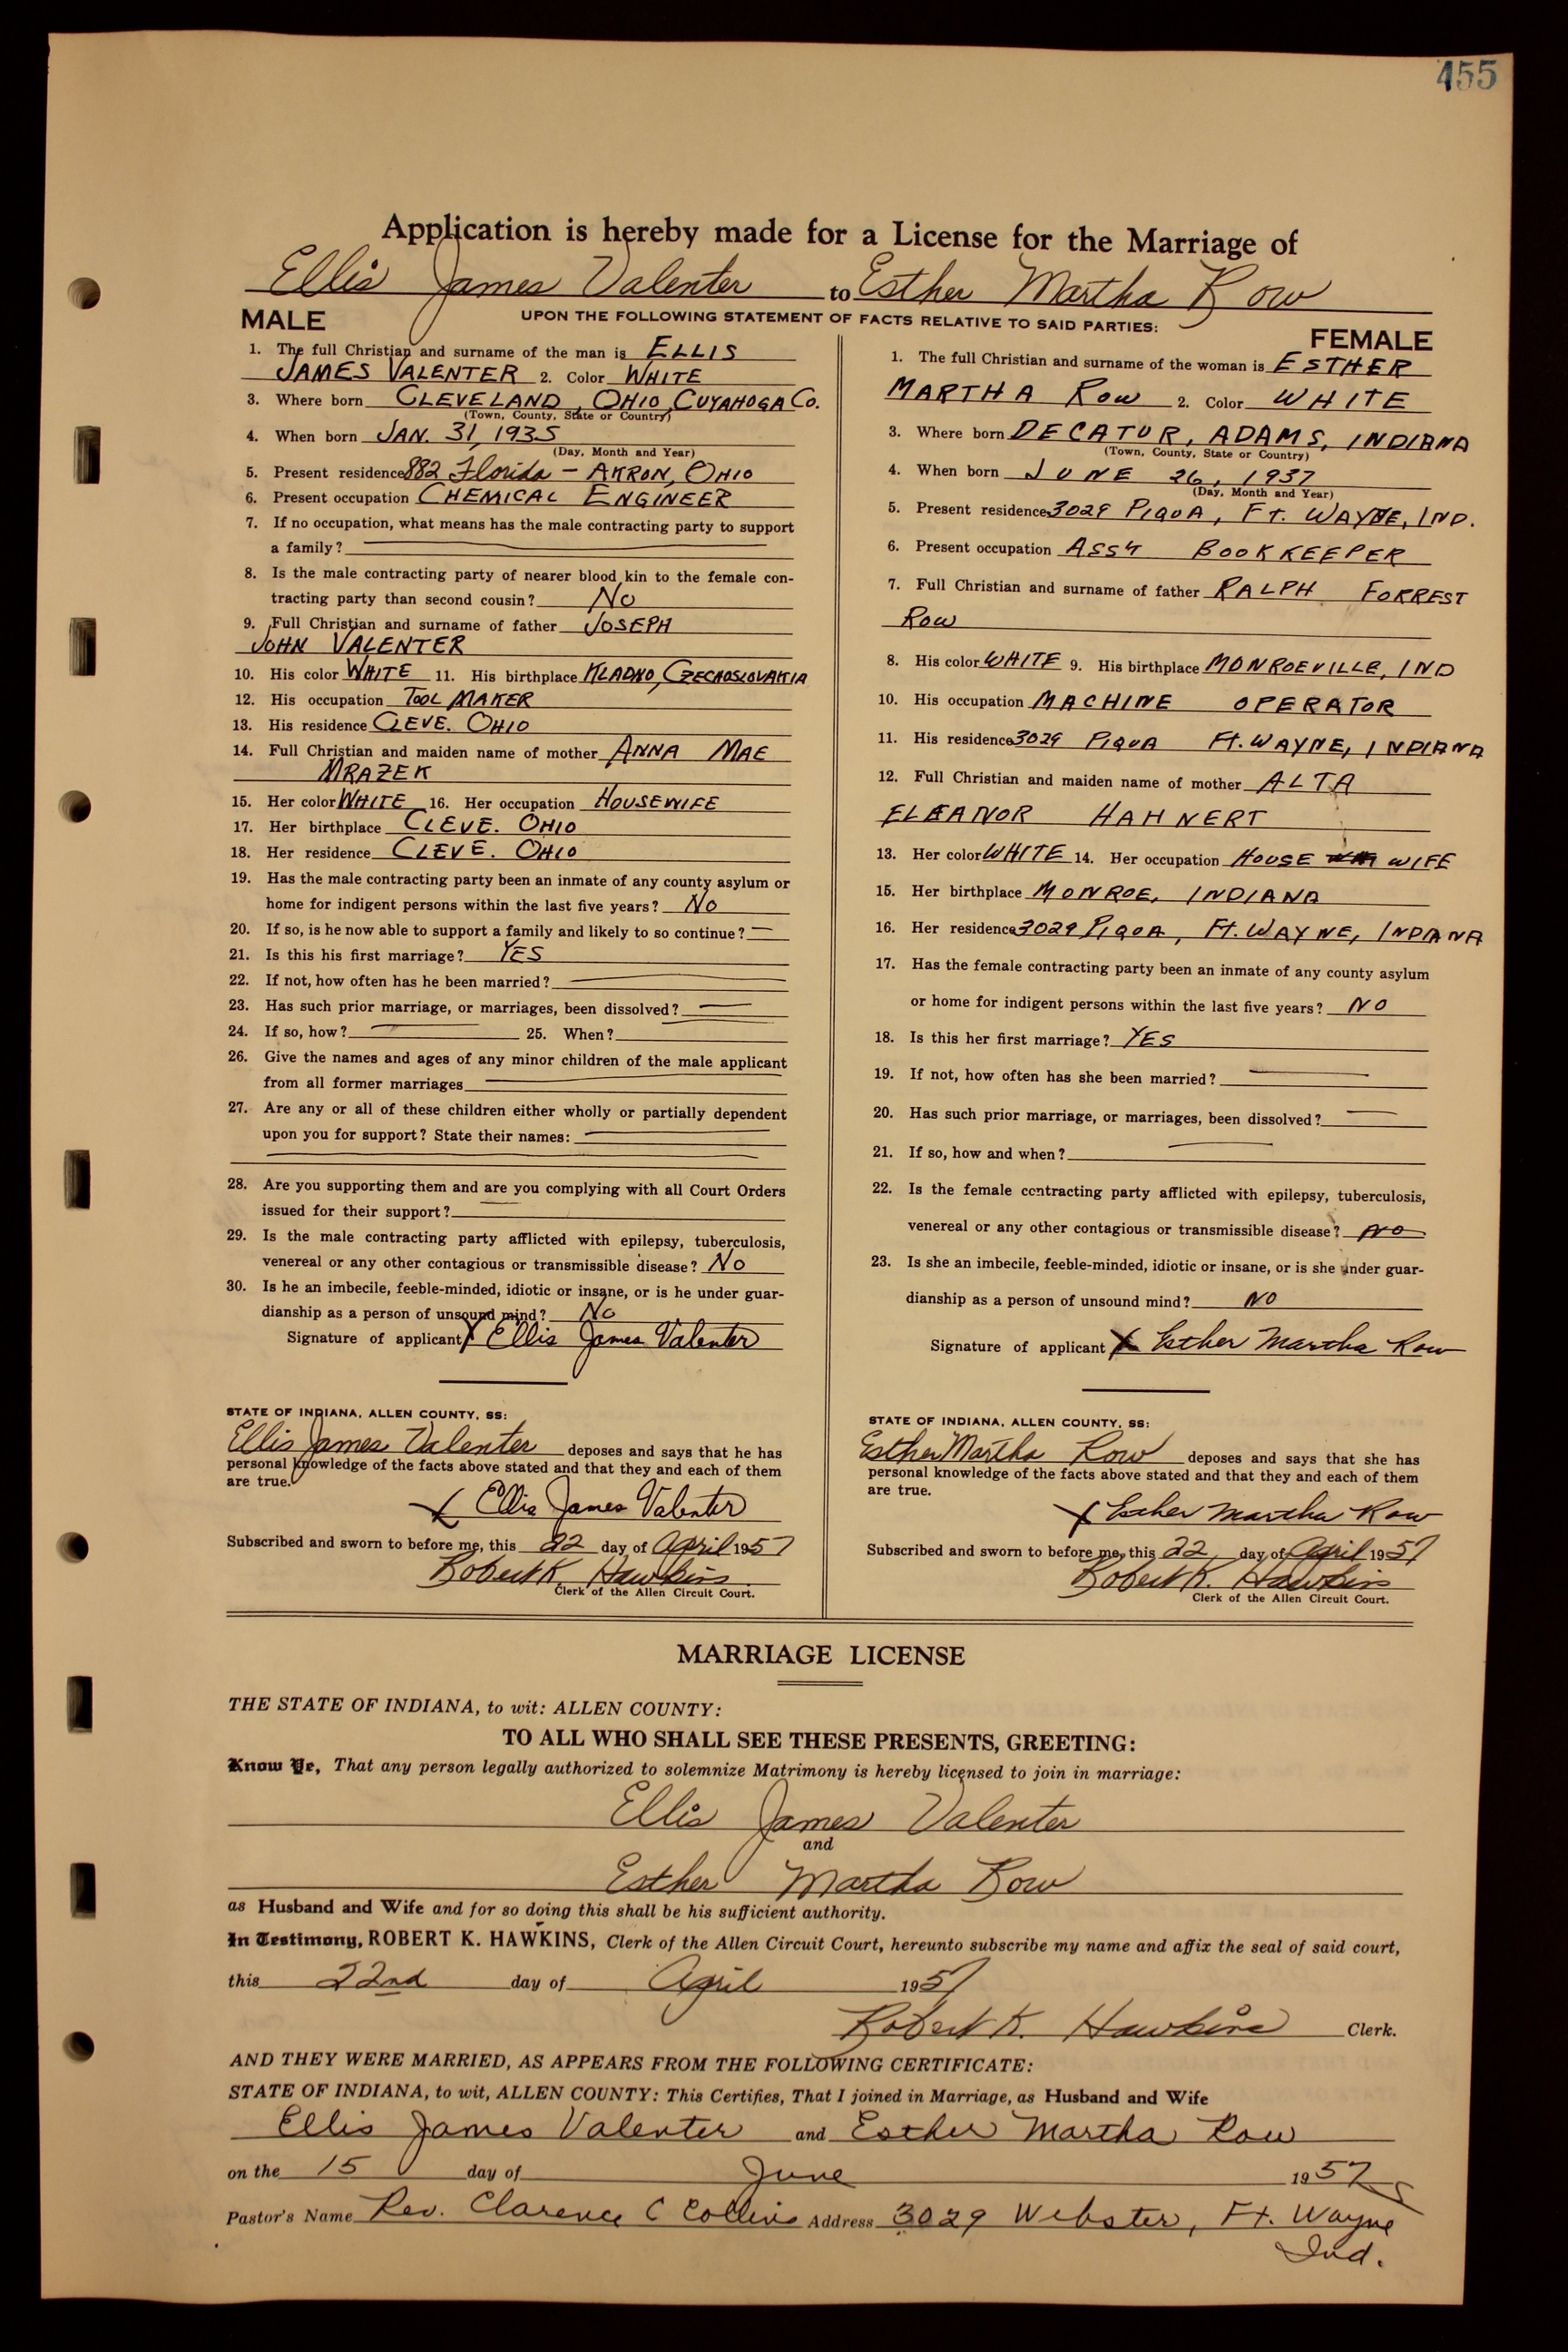 455
Application is hereby made for a License for the Marriage of
Ellis James Valenter to Esther Martha Row
UPON THE FOLLOWING STATEMENT OF FACTS RELATIVE TO SAID PARTIES:
MALE
1. The full Christian and surname of the man is ELLIS
JAMES VALENTER 2. Color WHITE
3. Where born CLEVELAND, OHIO, CUYAHOGA Co.
(Town, County, State or Country)
4. When born JAN. 31, 1935
(Day, Month and Year)
5. Present residence 882 Florida - AKRON, OHIO
6. Present occupation CHEMICAL ENGINEER
7. If no occupation, what means has the male contracting party to support
a family?
8. Is the male contracting party of nearer blood kin to the female con-
tracting party than second cousin? No
9. Full Christian and surname of father JOSEPH
JOHN VALENTER
10. His color WHITE 11. His birthplace KLADNO, CZECHOSLOVAKIA
12. His occupation TOOL MAKER
13. His residence CLEVE. OHIO
14. Full Christian and maiden name of mother ANNA MAE
MRAZEK
15. Her color WHITE 16. Her occupation HOUSEWIFE
17. Her birthplace CLEVE. OHIO
18. Her residence CLEVE. OHIO
19. Has the male contracting party been an inmate of any county asylum or
home for indigent persons within the last five years? No
20. If so, is he now able to support a family and likely to so continue? —
21. Is this his first marriage? YES
22. If not, how often has he been married?
23. Has such prior marriage, or marriages, been dissolved?
24. If so, how? 25. When?
26. Give the names and ages of any minor children of the male applicant
from all former marriages
27. Are any or all of these children either wholly or partially dependent
upon you for support? State their names:
28. Are you supporting them and are you complying with all Court Orders
issued for their support?
29. Is the male contracting party afflicted with epilepsy, tuberculosis,
venereal or any other contagious or transmissible disease? No
30. Is he an imbecile, feeble-minded, idiotic or insane, or is he under guar-
dianship as a person of unsound mind? No
Signature of applicant X Ellis James Valenter
STATE OF INDIANA, ALLEN COUNTY, SS:
Ellis James Valenter deposes and says that he has
personal knowledge of the facts above stated and that they and each of them
are true.
X Ellis James Valenter
Subscribed and sworn to before me, this 22 day of April 1957
Robert K. Hawkins
Clerk of the Allen Circuit Court.
FEMALE
1. The full Christian and surname of the woman is ESTHER
MARTHA ROW 2. Color WHITE
3. Where born DECATUR, ADAMS, INDIANA
(Town, County, State or Country)
4. When born JUNE 26, 1937
(Day, Month and Year)
5. Present residence 3029 PIQUA, FT. WAYNE, IND.
6. Present occupation ASS'T BOOKKEEPER
7. Full Christian and surname of father RALPH FORREST
ROW
8. His color WHITE 9. His birthplace MONROEVILLE, IND
10. His occupation MACHINE OPERATOR
11. His residence 3029 PIQUA FT. WAYNE, INDIANA
12. Full Christian and maiden name of mother ALTA
ELEANOR HAHNERT
13. Her color WHITE 14. Her occupation HOUSE WIFE
15. Her birthplace MONROE, INDIANA
16. Her residence 3029 PIQUA, FT. WAYNE, INDIANA
17. Has the female contracting party been an inmate of any county asylum
or home for indigent persons within the last five years? NO
18. Is this her first marriage? YES
19. If not, how often has she been married?
20. Has such prior marriage, or marriages, been dissolved?
21. If so, how and when?
22. Is the female contracting party afflicted with epilepsy, tuberculosis,
venereal or any other contagious or transmissible disease? NO
23. Is she an imbecile, feeble-minded, idiotic or insane, or is she under guar-
dianship as a person of unsound mind? NO
Signature of applicant X Esther Martha Row
STATE OF INDIANA, ALLEN COUNTY, SS:
Esther Martha Row deposes and says that she has
personal knowledge of the facts above stated and that they and each of them
are true.
X Esther Martha Row
Subscribed and sworn to before me, this 22, day of April 1957
Robert K. Hawkins
Clerk of the Allen Circuit Court.
MARRIAGE LICENSE
THE STATE OF INDIANA, to wit: ALLEN COUNTY:
TO ALL WHO SHALL SEE THESE PRESENTS, GREETING:
Know Ye, That any person legally authorized to solemnize Matrimony is hereby licensed to join in marriage:
Ellis James Valenter
and
Esther Martha Row
as Husband and Wife and for so doing this shall be his sufficient authority.
In Testimony, ROBERT K. HAWKINS, Clerk of the Allen Circuit Court, hereunto subscribe my name and affix the seal of said court,
this 22nd day of April 1957
Robert K. Hawkins Clerk.
AND THEY WERE MARRIED, AS APPEARS FROM THE FOLLOWING CERTIFICATE:
STATE OF INDIANA, to wit, ALLEN COUNTY: This Certifies, That I joined in Marriage, as Husband and Wife
Ellis James Valenter and Esther Martha Row
on the 15 day of June 1957
Pastor's Name Rev. Clarence C Collins Address 3029 Webster, Ft. Wayne
Ind.